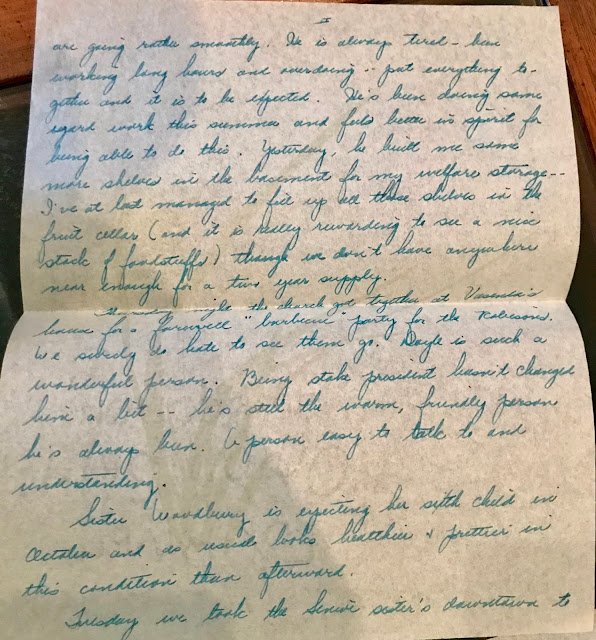 II
are going rather smoothly. He is always tired - been
working long hours and overdoing -- put everything to-
gether and it is to be expected. He's been doing some
yard work this summer and feels better in spirit for
being able to do this. Yesterday, he built me some
more shelves in the basement for my welfare storage --
I've at last managed to fill up all those shelves in the
fruit cellar (and it is really rewarding to see a nice
stack of foodstuffs) though we don't have anywhere
near enough for a two year supply.
the church got together at
house for a farewell "barbecue" party for the
We surely do hate to see them go. Dayle is such a
wonderful person. Being stake president hasn't changed
him a bit -- he's still the warm, friendly person
he's always been. A person easy to talk to and
understanding.
Sister Woodbury is expecting her sixth child in
October and as usual looks healthier & prettier in
this condition than afterward.
Tuesday we took the Senior sister's downtown to